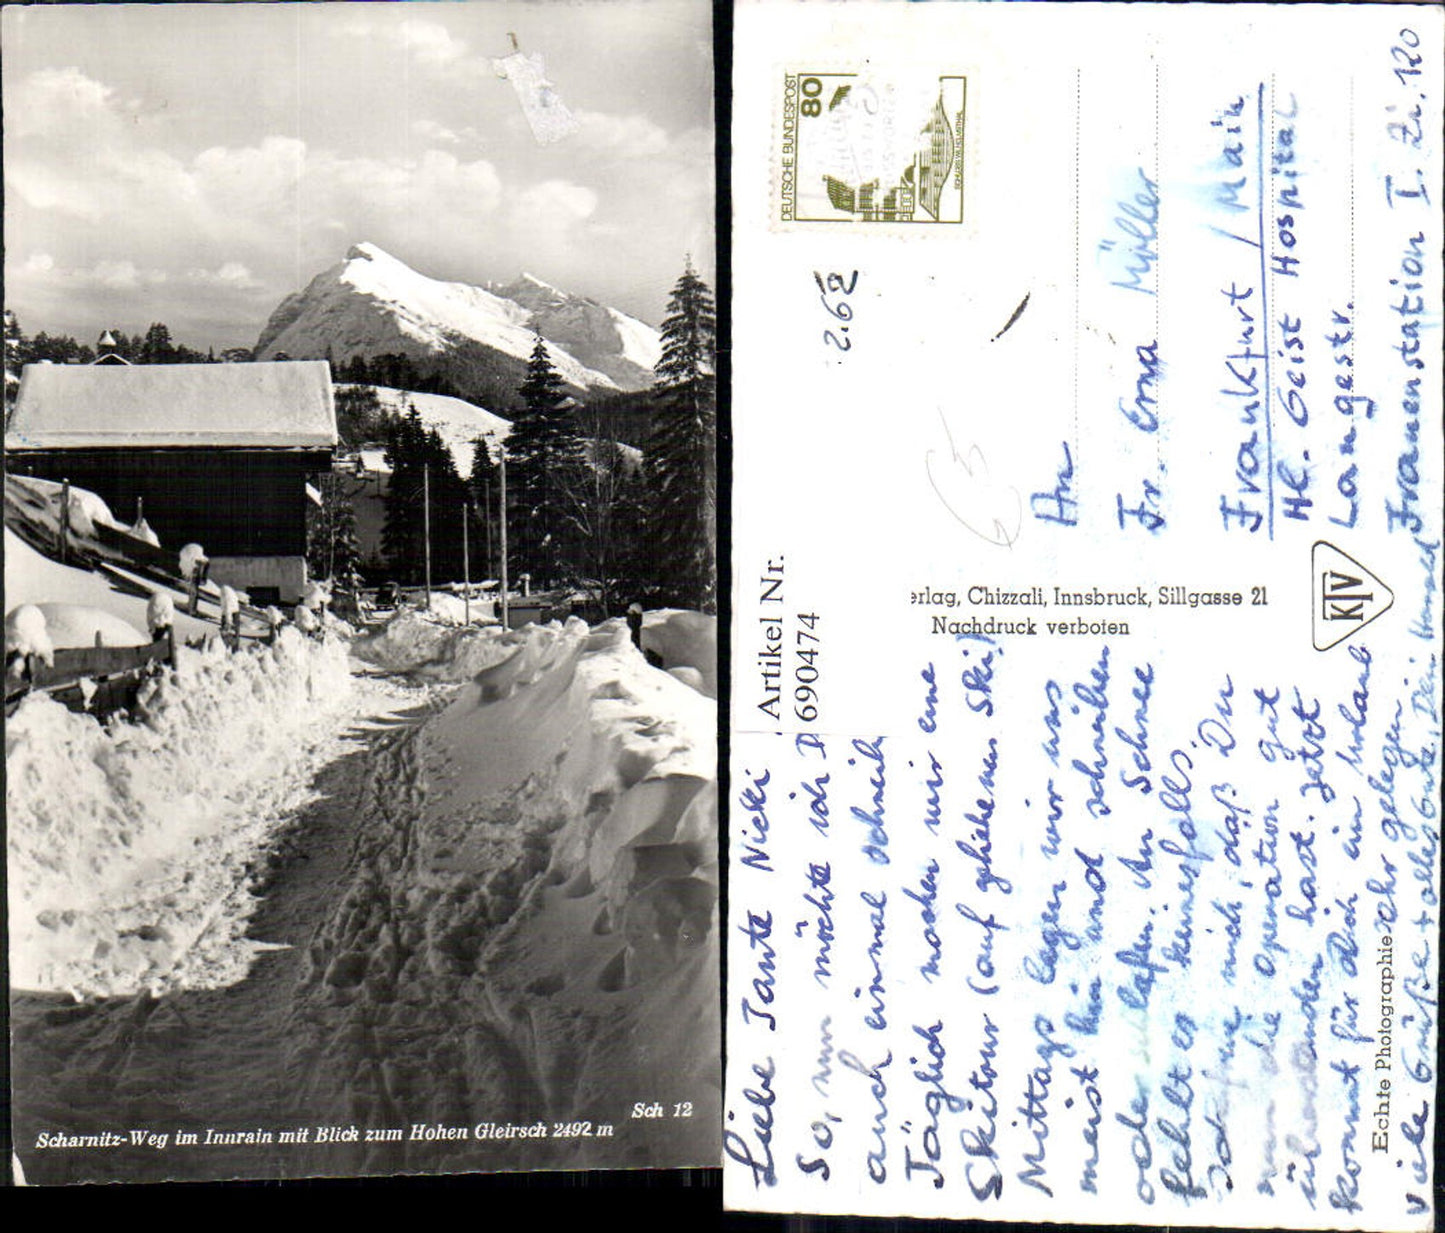 Sch 12
Scharnitz-Weg im Innrain mit Blick zum Hohen Gleirsch 2492 m
DEUTSCHE BUNDESPOST
80
Artikel Nr.
690474
2.62
An
Fr. Erna Müller
Frankfurt / Main
Hl. Geist Hospital
Langestr.
Frauenstation I. Zi. 120
erlag, Chizzali, Innsbruck, Sillgasse 21
Nachdruck verboten
KTV
Echte Photographie
Liebe Tante Nicki
So, nun möchte ich D
auch einmal schreib
Täglich machen wir eine
Skitour (auf geliehenen Ski)
Mittags legen wir uns
meist hin und schreiben
oder schlafen. An Schnee
fehlt es keinesfalls.
mich, daß Du
nun die Operation gut
überstanden hast. Jetzt
kommt für Dich ein Urlaub
sehr gelegen
viele Grüße + alles Gute, Dein